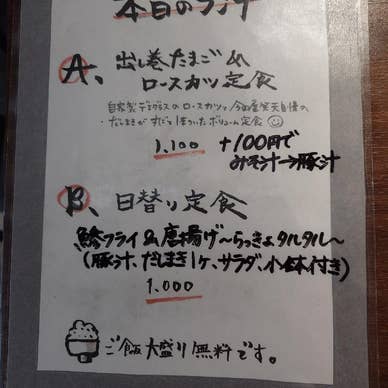 本日のランチ
A、出し巻たまご&
ロースカツ定食
自家製デミグラスのロースカツと
だしまきが
ボリューム定食
1,100 +100円で
みそ汁→豚汁
B、日替り定食
鯵フライ&唐揚げ〜らっきょタルタル〜
(豚汁、だしまき1ヶ、サラダ、小鉢付き)
1,000
ご飯大盛り無料です。